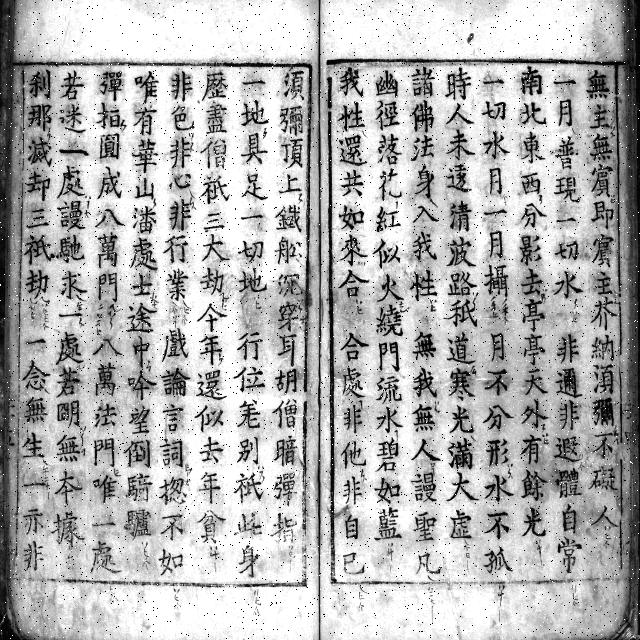 無主無賓即賓主芥納湏彌不礙人
一月普現一切水 非邇非遐體自常
南北東西分影去亭亭天外有餘光
一切水月一月攝 月不分形水不孤
時人未達清波路秖道寒光滿大虛
諸佛法身入我性 無我無人謾聖凡
幽徑落花紅似火繞門流水碧如藍
我性還共如來合 合處非他非自己
湏彌頂上鐵舩 穿耳胡僧暗彈指
一地具足一切地 行位差別秖此身
歷盡僧祇三大劫今年還似去年貧
非色非心非行業 戲論言詞揔不如
唯有華山潘處士途中吟望倒騎驢
彈指圓成八萬門 八萬法門唯一處
若迷一處謾馳求一處若明無本據
刹那滅却三祇劫 一念無生一亦非